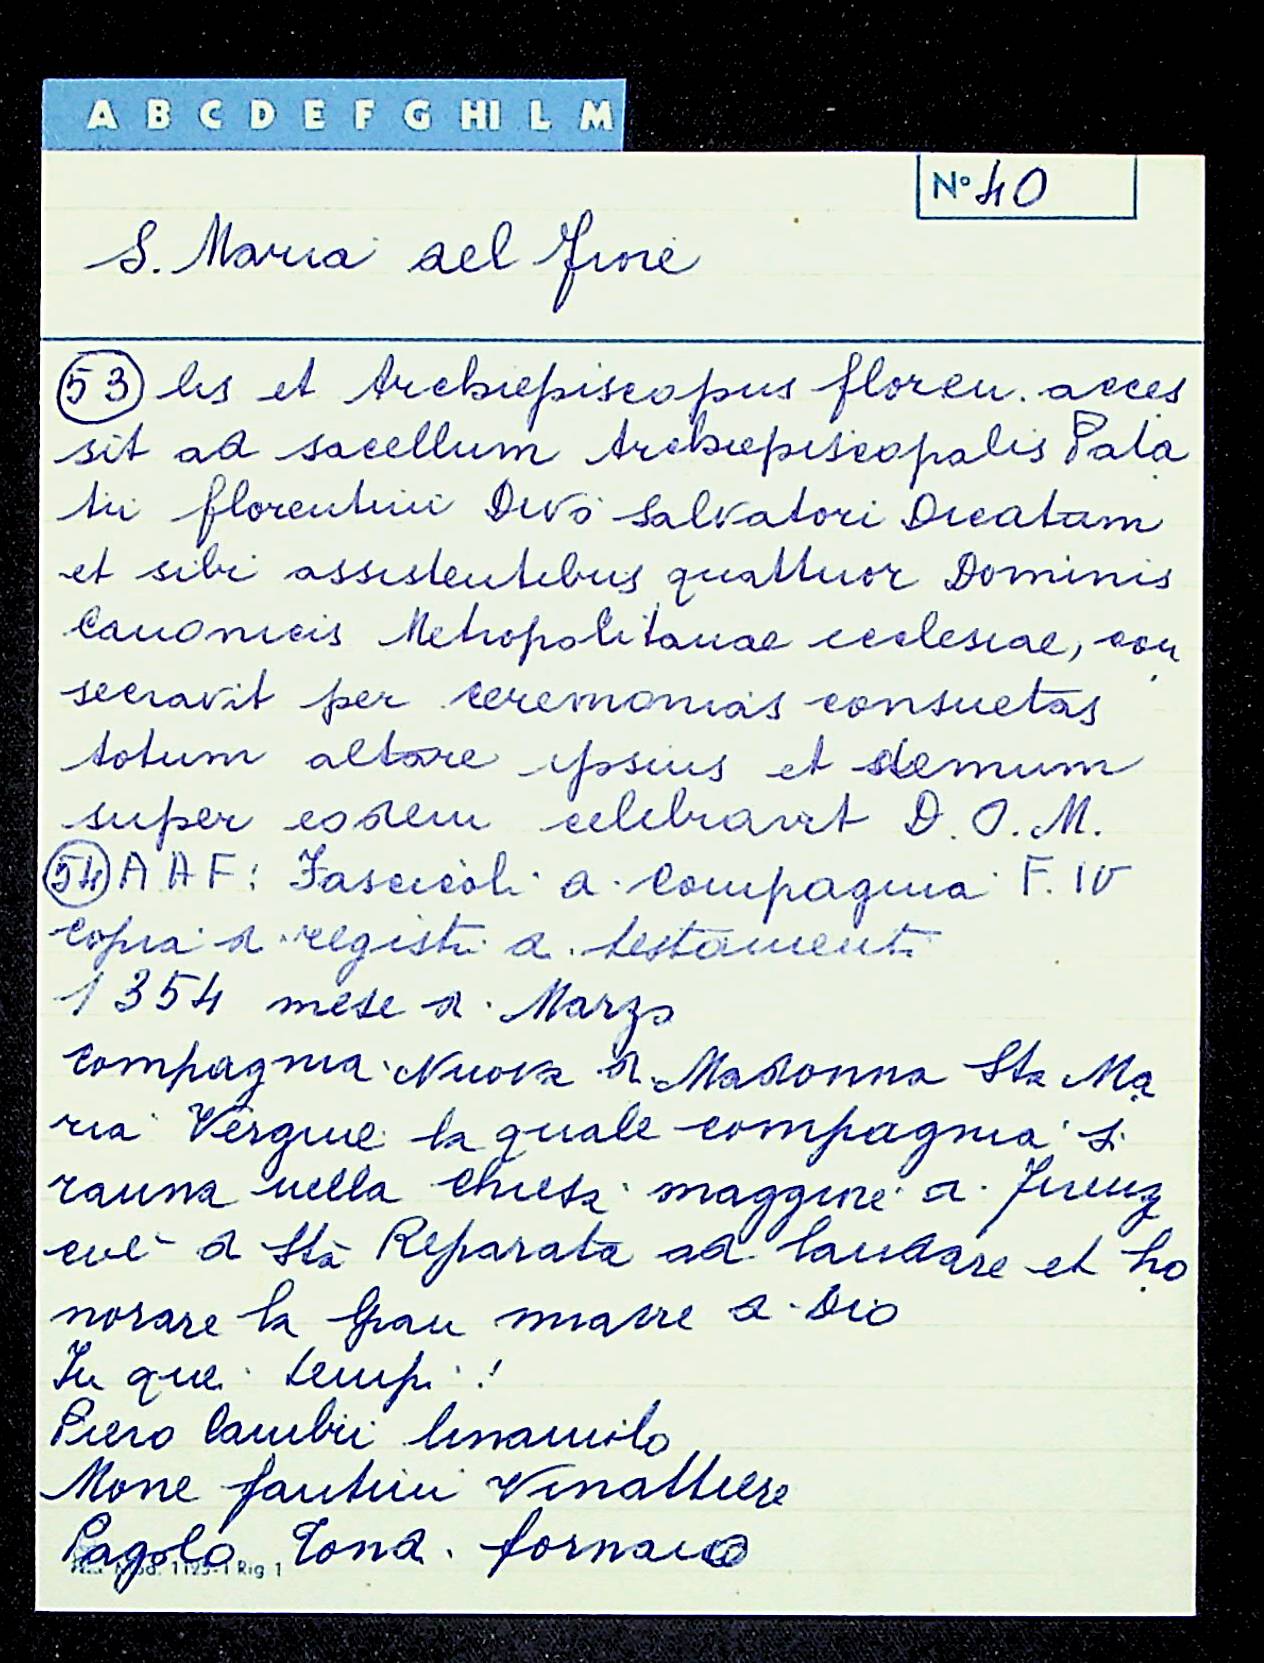 A B C D E F G HI L M
N° 40
S. Maria del Fiore
53 lis et Archiepiscopus floren. acces
sit ad sacellum Archiepiscopalis Pala
tii florentini Divo Salvatori Dicatam
et sibi assistentibus quattuor Dominis
Canonicis Metropolitanae ecclesiae, con
secravit per ceremonias consuetas
totum altare ipsius et demum
super eodem celebravit D. O. M.
54 A A F: Fascicoli di Compagnia F. IV
copia di registri di testamenti
1354 mese di Marzo
Compagnia Nuova di Madonna Sta Ma
ria Vergine la quale compagnia si
rauna nella Chiesa maggiore di Firenz
e cioè di Sta Reparata ad laudare et ho
norare la Gran madre di Dio
In quei tempi!
Piero Cambii linaiuolo
Mone fantini Vinattiere
Pagolo fornaio
Mod. 1125-1 Rig 1